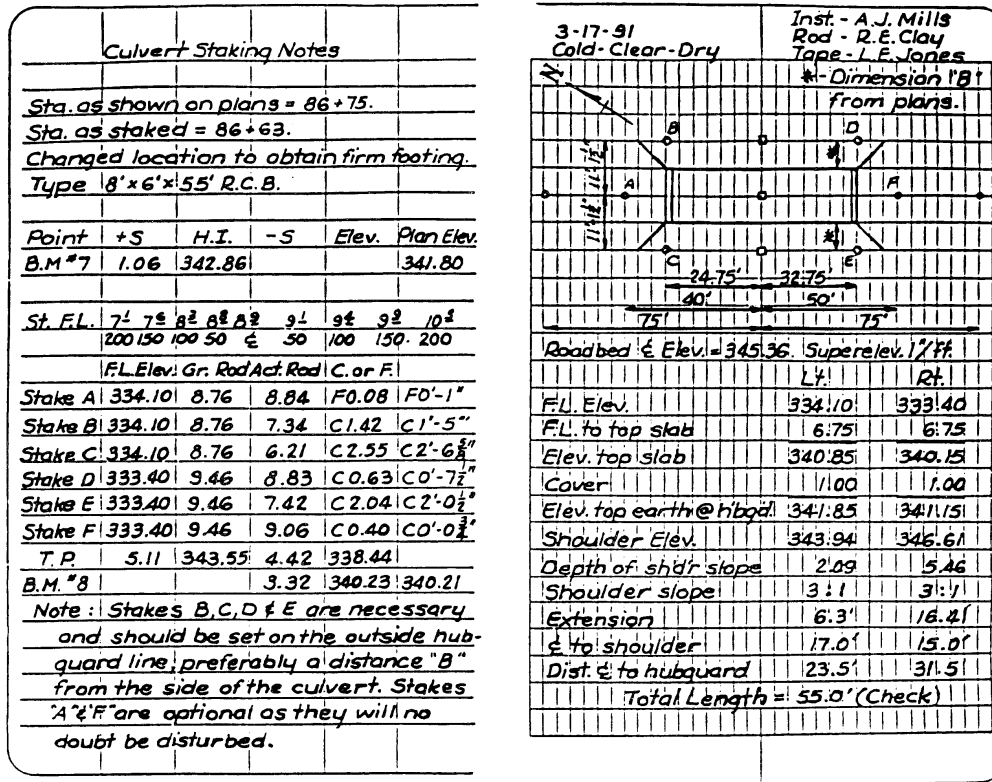 Culvert Staking Notes
Sta. as shown on plans = 86+75.
Sta. as staked = 86+63.
Changed location to obtain firm footing.
Type 8'x6'x55' R.C.B.
Point +S H.I. -S Elev. Plan Elev.
B.M #7 1.06 342.86 341.80
St. F.L.
200 150 100 50 ℄ 50 100 150. 200
F.L.Elev. Gr. Rod Act. Rod C. or F.
Stake A 334.10 8.76 8.84 F0.08 F0'-1"
Stake B 334.10 8.76 7.34 C1.42 C1'-5"
Stake C 334.10 8.76 6.21 C2.55 C2'-6 5/8"
Stake D 333.40 9.46 8.83 C0.63 C0'-7 1/2"
Stake E 333.40 9.46 7.42 C2.04 C2'-0 1/2"
Stake F 333.40 9.46 9.06 C0.40 C0'-0 3/4"
T.P. 5.11 343.55 4.42 338.44
B.M. #8 3.32 340.23 340.21
Note: Stakes B,C,D & E are necessary
and should be set on the outside hub-
guard line, preferably a distance "B"
from the side of the culvert. Stakes
"A"&"F" are optional as they will no
doubt be disturbed.
3-17-91
Cold-Clear-Dry
Inst. - A.J. Mills
Rod - R.E. Clay
Tape - L.E. Jones
*-Dimension "B"
from plans.
N
B D
*
11'-1 1/2"
A F
11'-1 1/2"
*
C E
24.75' 32.75'
40' 50'
75' 75'
Roadbed ℄ Elev. = 345.36. Superelev. 1"/ft.
Lt. Rt.
F.L. Elev. 334.10 333.40
F.L. to top slab 6.75 6.75
Elev. top slab 340.85 340.15
Cover 1.00 1.00
Elev. top earth @ h'bgd. 341.85 341.15
Shoulder Elev. 343.94 346.61
Depth of shd'r slope 2.09 5.46
Shoulder slope 3:1 3:1
Extension 6.3' 16.4'
℄ to shoulder 17.0' 15.0'
Dist. ℄ to hubguard 23.5' 31.5'
Total Length = 55.0' (Check)